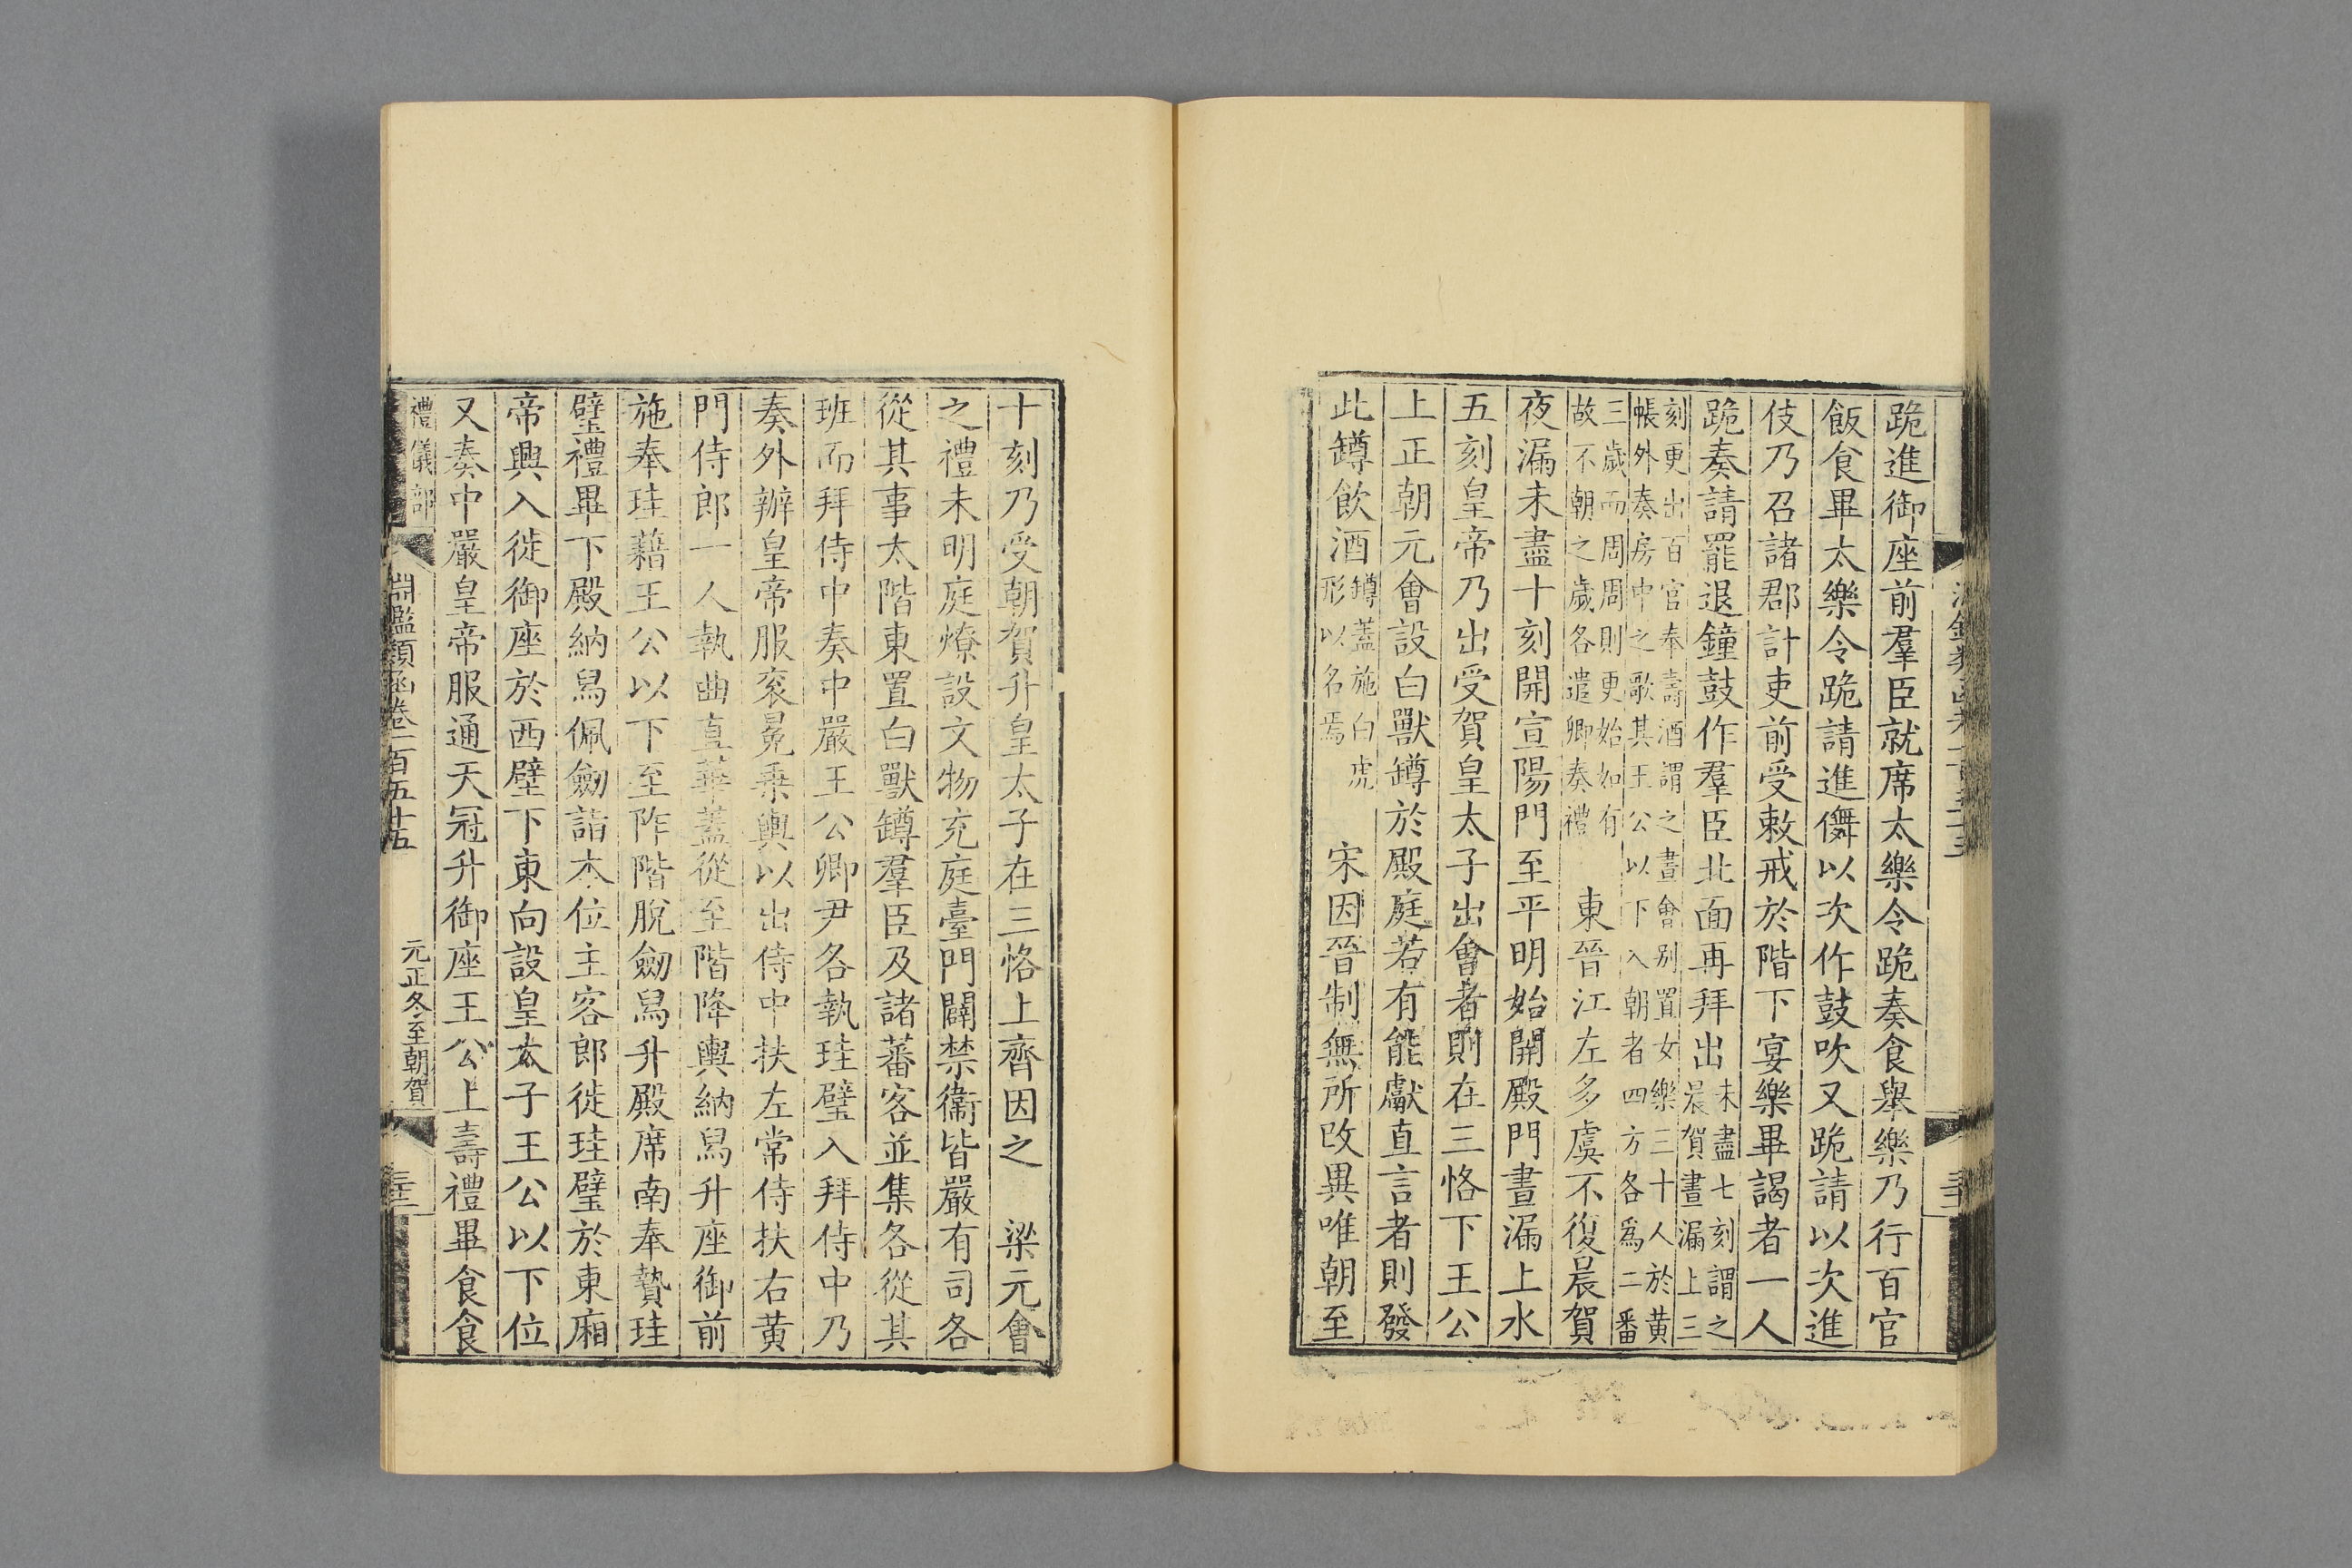 跪進御座前羣臣就席太樂令跪奏食舉樂乃行百官
飯食畢太樂令跪請進儛以次作鼓吹又跪請以次進
伎乃召諸郡計吏前受敕戒於階下宴樂畢謁者一人
跪奏請罷退鐘鼓作羣臣北面再拜出未盡七刻謂之
晨賀晝漏上三
刻更出百官奉壽酒謂之晝會别置女樂三十人於黄
帳外奏房中之歌其王公以下入朝者四方各爲二番
三歲而周周則更始如有
故不朝之歲各遣卿奏禮
東晉江左多虞不復晨賀
夜漏未盡十刻開宣陽門至平明始開殿門晝漏上水
五刻皇帝乃出受賀皇太子出會者則在三恪下王公
上正朝元會設白獸罇於殿庭若有能獻直言者則發
此罇飲酒罇蓋施白虎
形以名焉
宋因晉制無所改異唯朝至
十刻乃受朝賀升皇太子在三恪上齊因之　梁元會
之禮未明庭燎設文物充庭臺門闢禁衞皆嚴有司各
從其事太階東置白獸罇羣臣及諸蕃客並集各從其
班而拜侍中奏中嚴王公卿尹各執珪璧入拜侍中乃
奏外辦皇帝服衮冕乗輿以出侍中扶左常侍扶右黄
門侍郎一人執曲直華蓋從至階降輿納舄升座御前
施奉珪藉王公以下至阼階脫劒舄升殿席南奉贄珪
璧禮畢下殿納舄佩劒詣本位主客郎徙珪璧於東廂
帝興入徙御座於西壁下東向設皇太子王公以下位
又奏中嚴皇帝服通天冠升御座王公上壽禮畢食食
禮儀部
淵鑑類函卷一百五十五
元正冬至朝賀